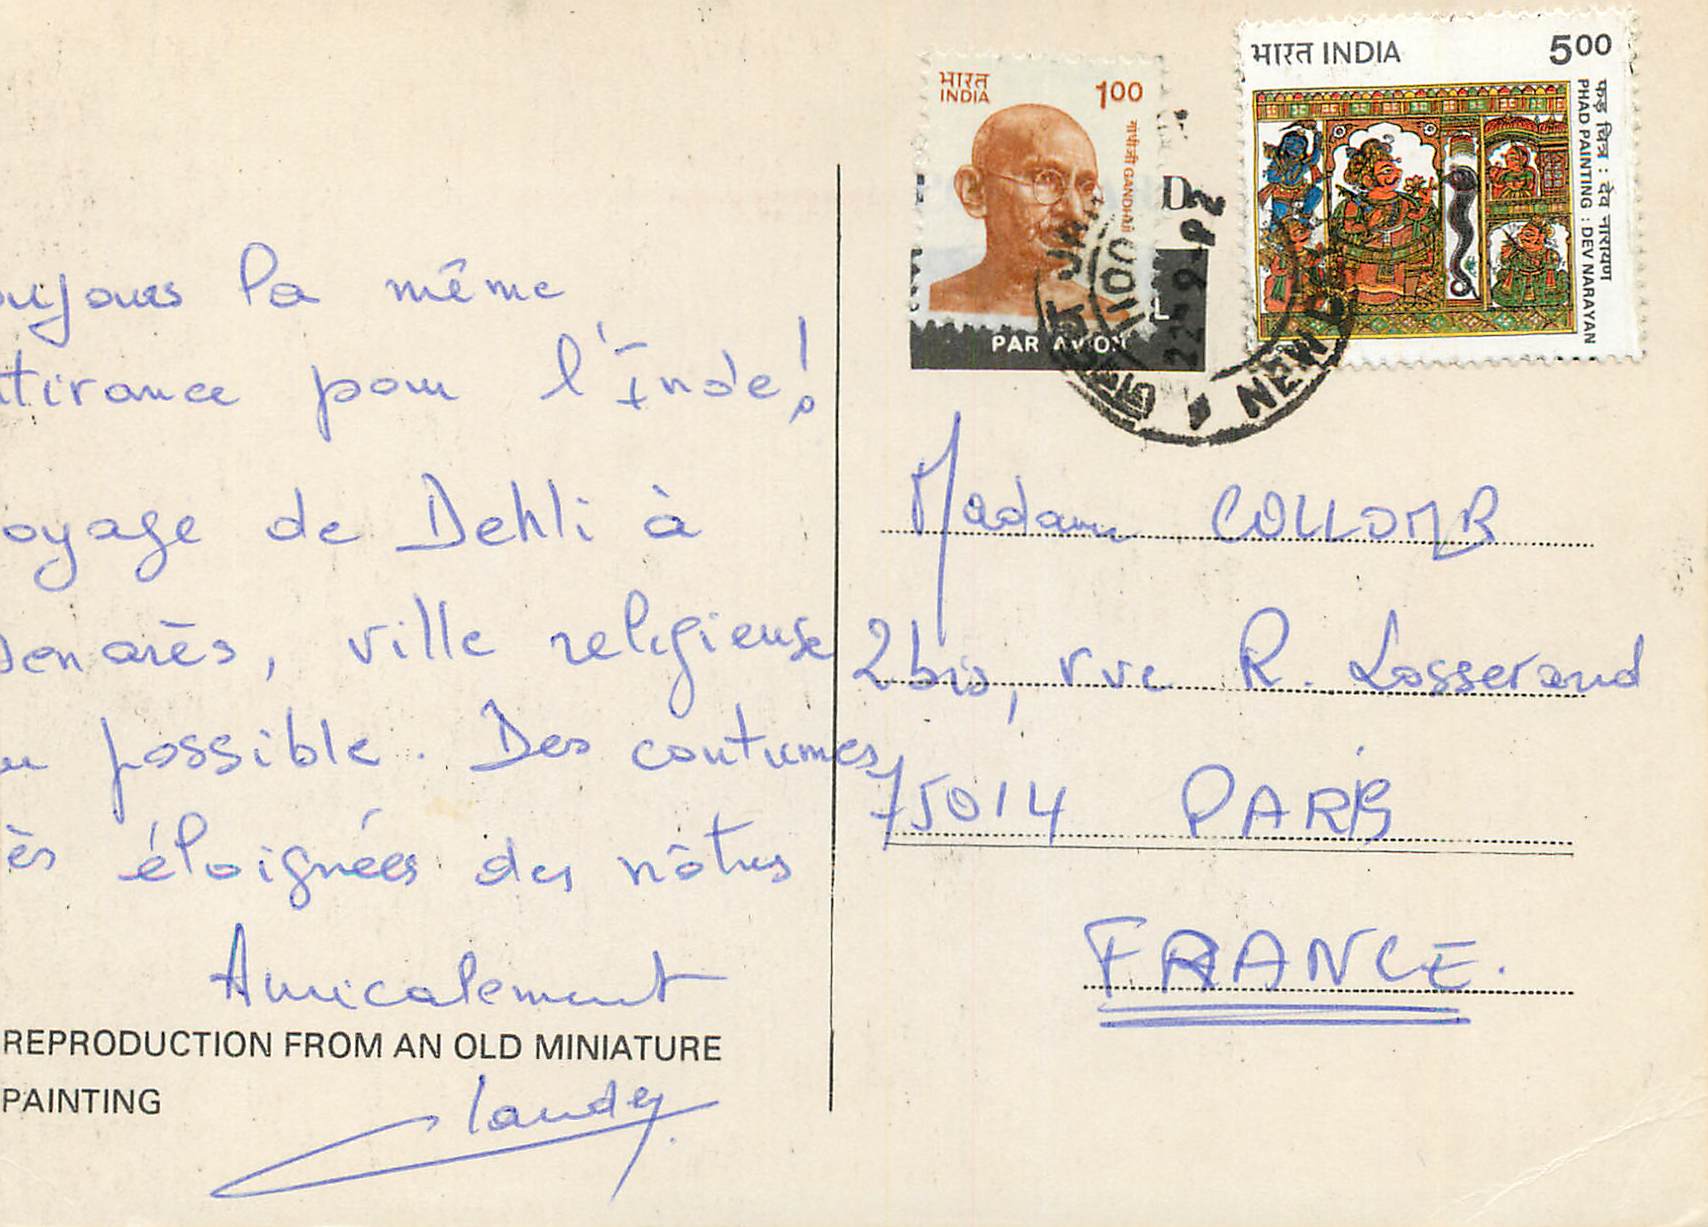 oujours la même
ttirance pour l'Inde!
oyage de Dehli à
enarès, ville religieuse
possible. Des coutumes
ès éloignées des nôtres
Amicalement
REPRODUCTION FROM AN OLD MINIATURE
PAINTING
भारत
INDIA
1.00
गांधीजी GANDHIJI
PAR AVION
भारत INDIA 5.00
फड़ चित्र : देव नारायण
PHAD PAINTING : DEV NARAYAN
NEW
Madame COLLOMB
2 bis, rue R. Losserand
75014 PARIS
FRANCE.